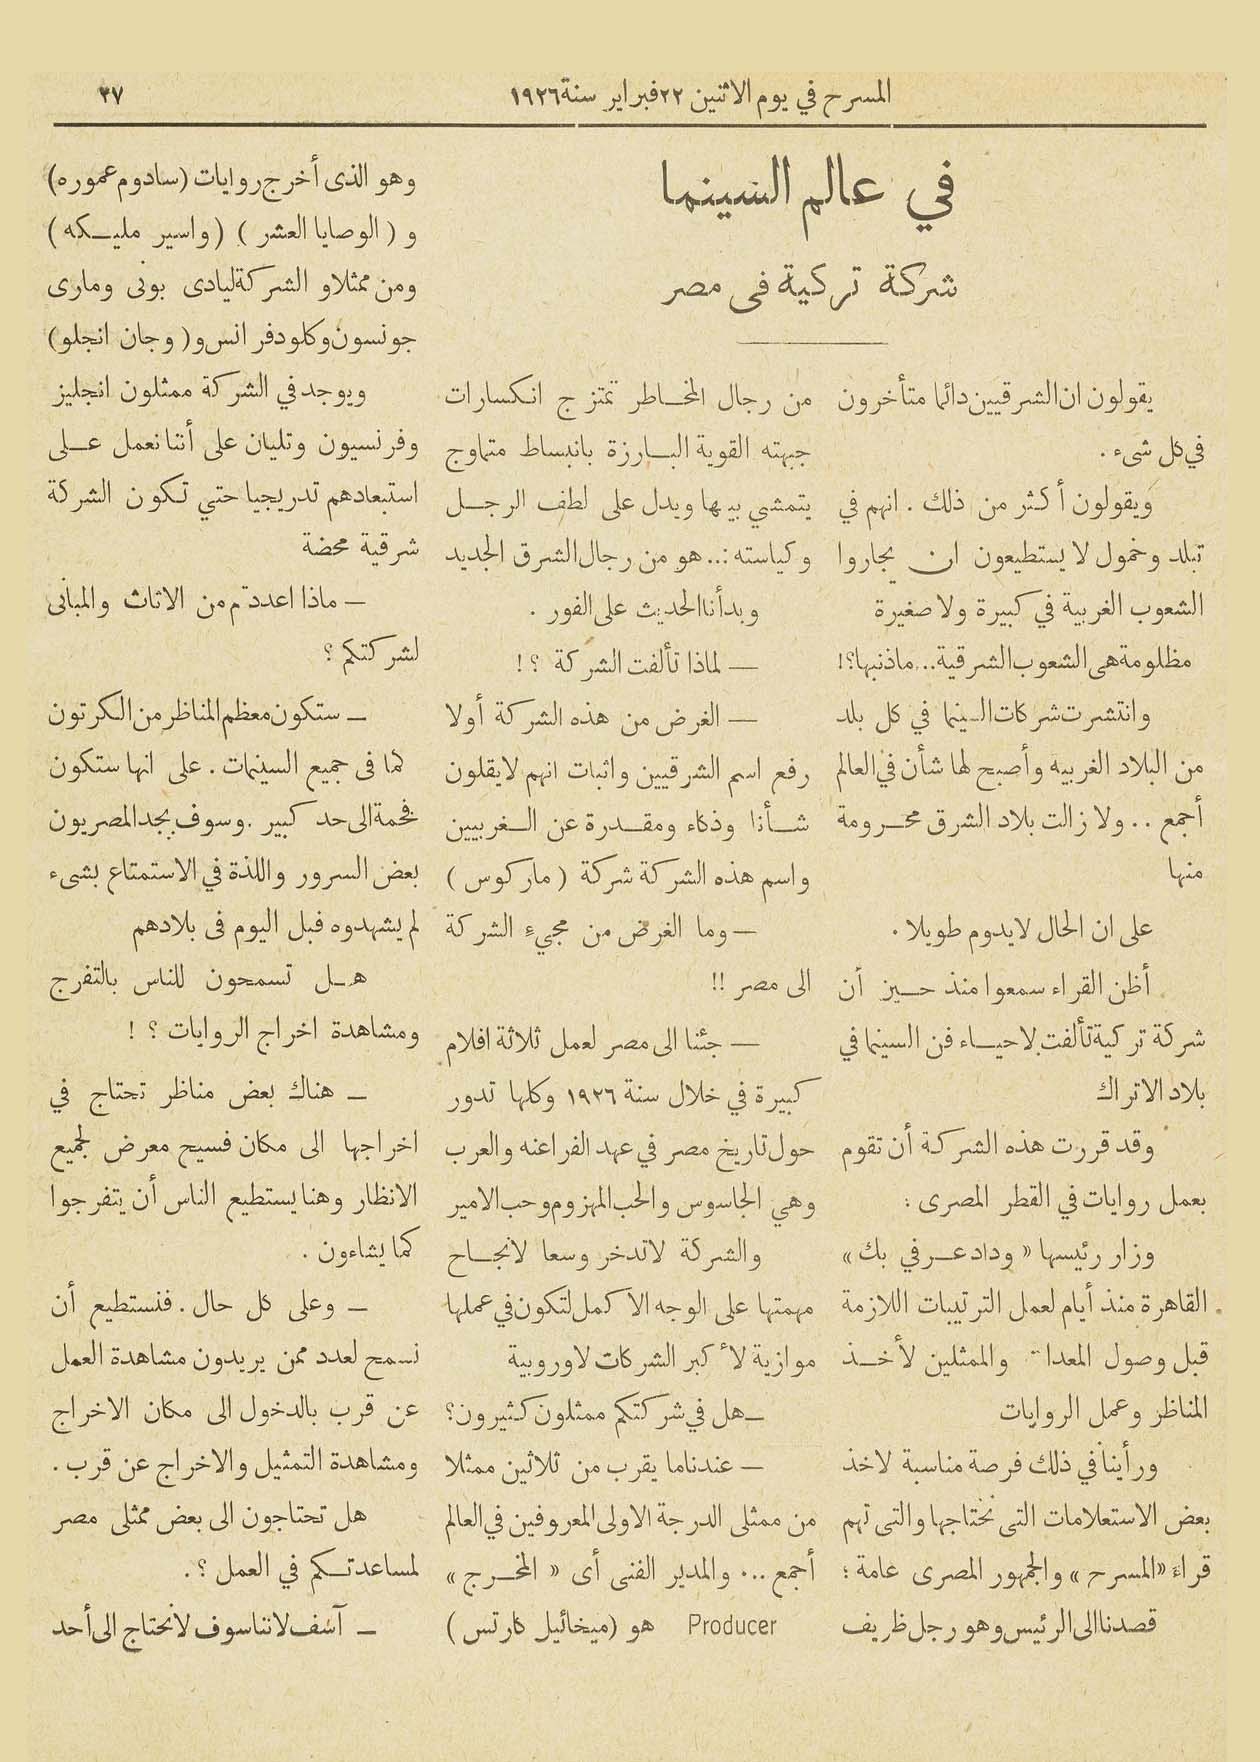 المسرح في يوم الاثنين ٢٢ فبراير سنة ١٩٢٦
٣٧
في عالم السينما
شركة تركية فى مصر
يقولون ان الشرقيين دائما متأخرون
في كل شىء .
ويقولون أكثر من ذلك . انهم في
تبلد وخمول لا يستطيعون ان يجاروا
الشعوب الغربية في كبيرة ولا صغيرة
مظلومة هى الشعوب الشرقية... ماذنبها؟!
وانتشرت شركات السينما في كل بلد
من البلاد الغربيه وأصبح لها شأن في العالم
أجمع .. ولا زالت بلاد الشرق محرومة
منها
على ان الحال لايدوم طويلا .
أظن القراء سمعوا منذ حين أن
شركة تركية تألفت لاحياء فن السينما في
بلاد الاتراك
وقد قررت هذه الشركة أن تقوم
بعمل روايات في القطر المصرى :
وزار رئيسها « وداد عرفي بك »
القاهرة منذ أيام لعمل الترتيبات اللازمة
قبل وصول المعدات والممثلين لأخذ
المناظر وعمل الروايات
ورأينا في ذلك فرصة مناسبة لاخذ
بعض الاستعلامات التى نحتاجها والتى تهم
قراء «المسرح» والجمهور المصرى عامة :
قصدنا الى الرئيس وهو رجل ظريف
من رجال المخاطر تمتزج انكسارات
جبهته القوية البارزة بانبساط متماوج
يتمشي بيها ويدل على لطف الرجل
وكياسته ... هو من رجال الشرق الجديد
وبدأنا الحديث على الفور .
— لماذا تألفت الشركة ؟!
— الغرض من هذه الشركة أولا
رفع اسم الشرقيين واثبات انهم لايقلون
شأنا وذكاء ومقدرة عن الغربيين
واسم هذه الشركة شركة ( ماركوس )
— وما الغرض من مجيء الشركة
الى مصر !!
— جئنا الى مصر لعمل ثلاثة افلام
كبيرة في خلال سنة ١٩٢٦ وكلها تدور
حول تاريخ مصر في عهد الفراعنه والعرب
وهي الجاسوس والحب المهزوم وحب الامير
والشركة لاتدخر وسعا لانجاح
مهمتها على الوجه الاكمل لتكون في عملها
موازية لأكبر الشركات لاوروبية
— هل في شركتكم ممثلون كثيرون؟
— عندنا ما يقرب من ثلاثين ممثلا
من ممثلى الدرجة الاولى المعروفين في العالم
أجمع ... والمدير الفنى أى « المخرج »
Producer هو (ميخائيل كارتس )
وهو الذى أخرج روايات (سادوم عموره)
و ( الوصايا العشر ) ( واسير مليكه )
ومن ممثلاو الشركة ليادى بونى ومارى
جونسون وكلود فرانس و( وجان انجلو)
ويوجد في الشركة ممثلون انجليز
وفرنسيون وتليان على أننا نعمل على
استبعادهم تدريجيا حتي تكون الشركة
شرقية محضة
— ماذا اعددتم من الاثاث والمبانى
لشركتكم ؟
— ستكون معظم المناظر من الكرتون
كما فى جميع السينمات . على انها ستكون
فخمة الى حد كبير . وسوف يجد المصريون
بعض السرور واللذة في الاستمتاع بشىء
لم يشهدوه قبل اليوم فى بلادهم
هل تسمحون للناس بالتفرج
ومشاهدة اخراج الروايات ؟ !
— هناك بعض مناظر تحتاج في
اخراجها الى مكان فسيح معرض لجميع
الانظار وهنا يستطيع الناس أن يتفرجوا
كما يشاءون .
— وعلى كل حال . فنستطيع أن
نسمح لعدد ممن يريدون مشاهدة العمل
عن قرب بالدخول الى مكان الاخراج
ومشاهدة التمثيل والاخراج عن قرب .
هل تحتاجون الى بعض ممثلى مصر
لمساعدتكم في العمل ؟ .
— آسف لاننا سوف لانحتاج الى أحد